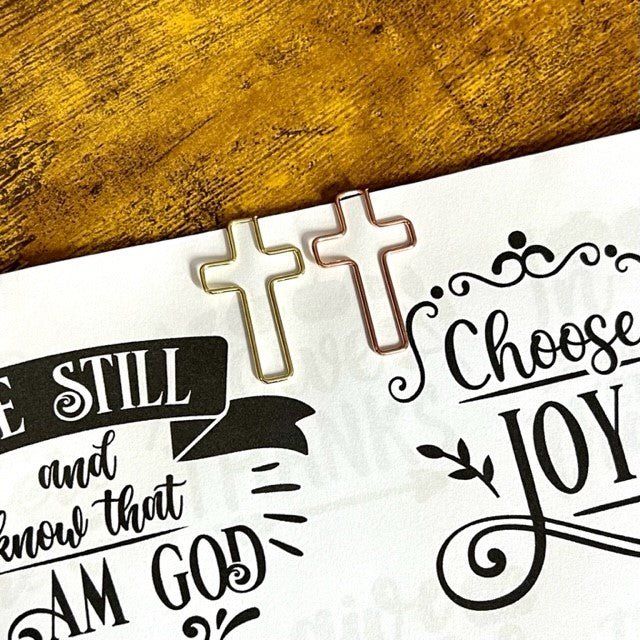 E STILL
and
know that
AM GOD
Choose
JOY